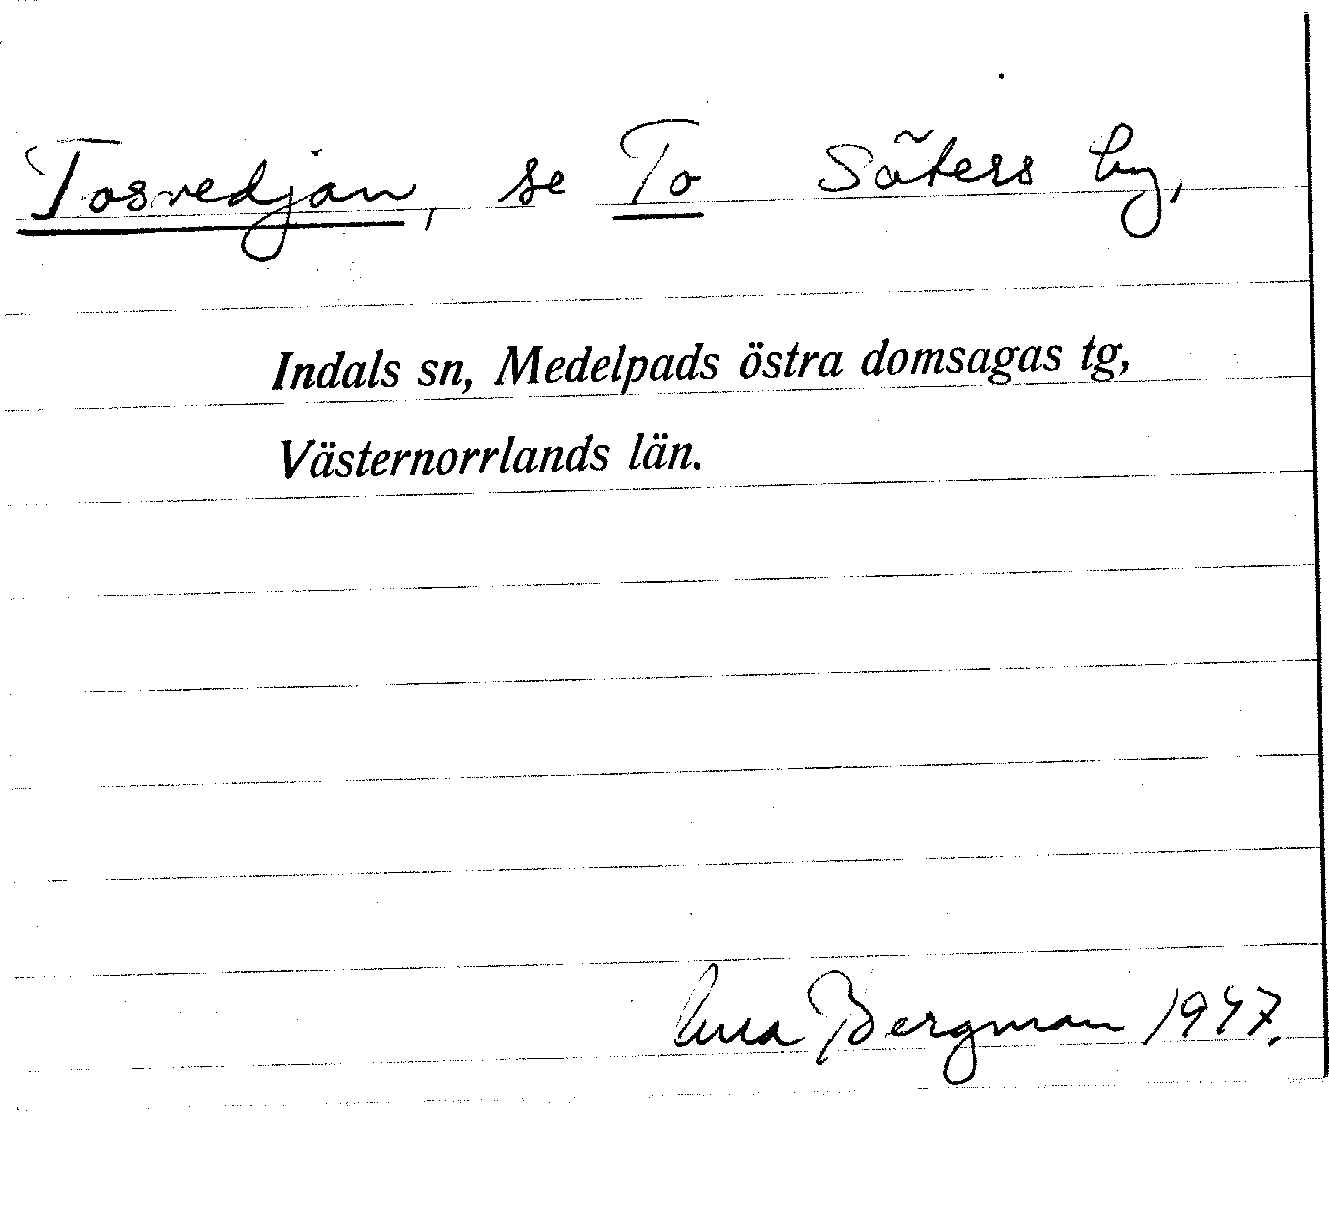 Tosvedjan, se To Säters by,
Indals sn, Medelpads östra domsagas tg,
Västernorrlands län.
Bergman 1947.